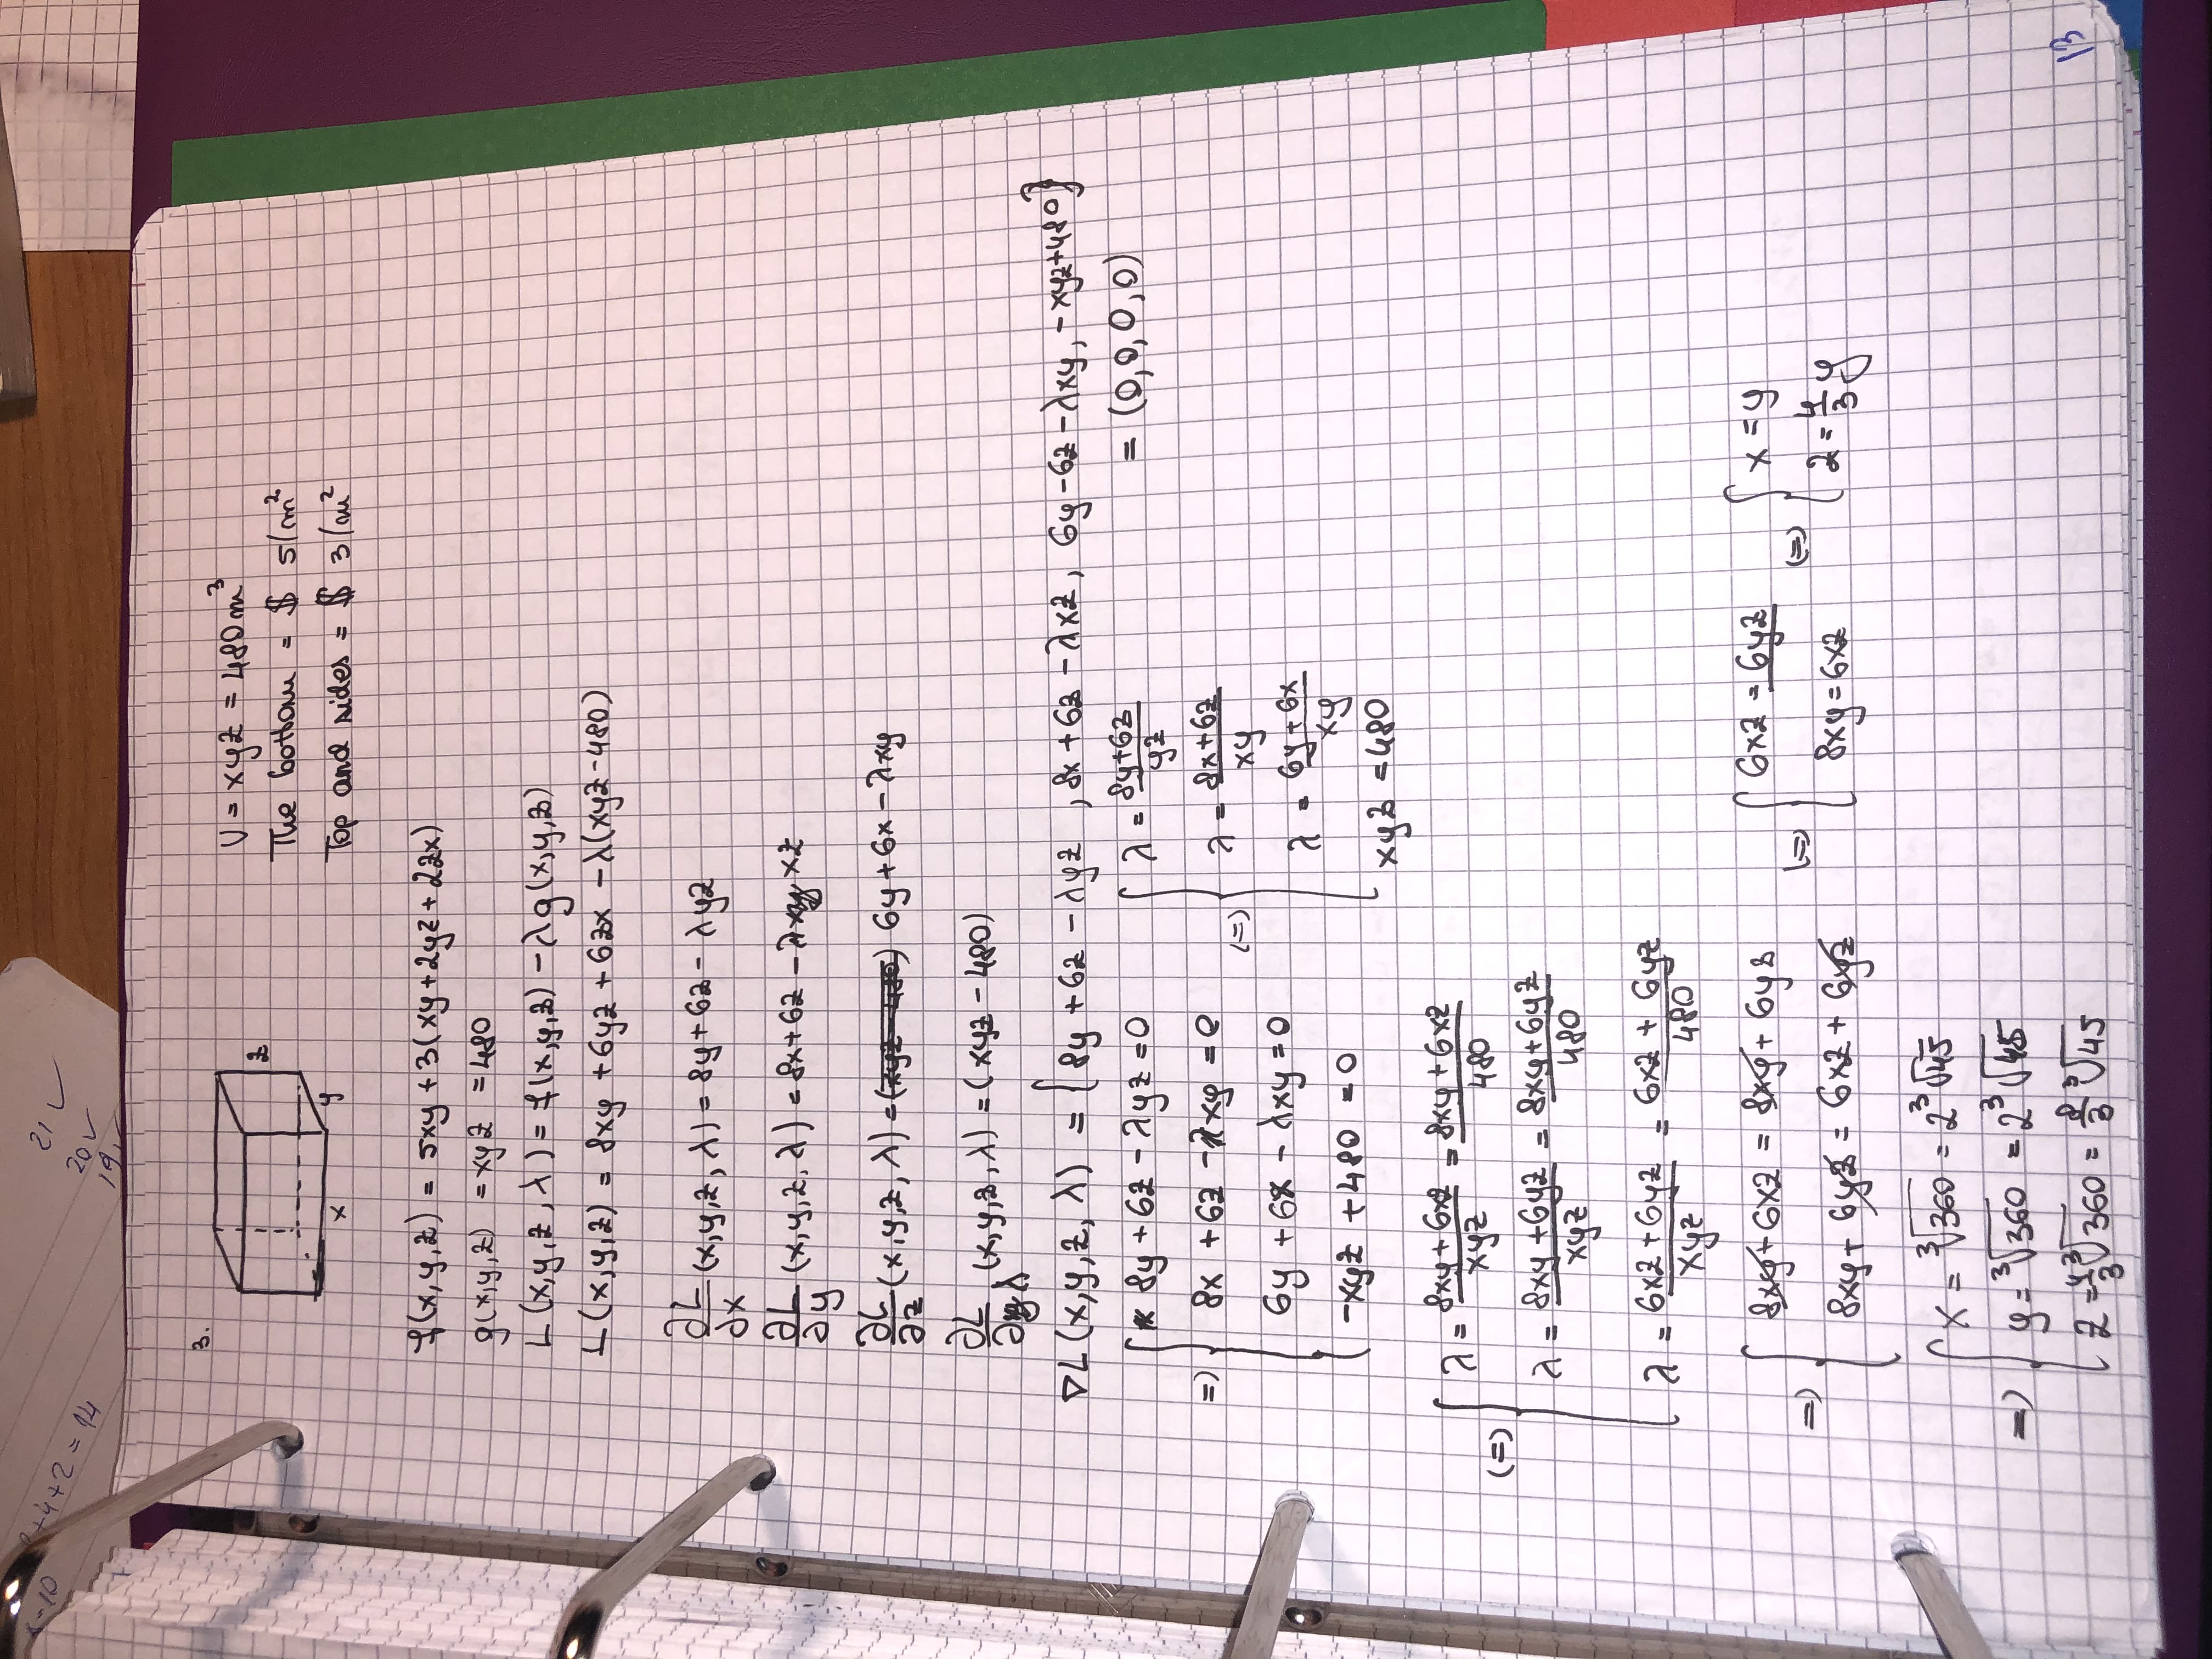 x-10
8+4+2=14
21 ✓
20 ✓
19 ✓
3.
z
x
y
V = xyz = 480 m³
The bottom = $ 5/m²
Top and sides = $ 3/m²
f(x,y,z) = 5xy + 3(xy+2yz+2zx)
g(x,y,z) = xyz = 480
L(x,y,z,λ) = f(x,y,z) - λg(x,y,z)
L(x,y,z) = 8xy + 6yz + 6zx - λ(xyz-480)
∂L/∂x (x,y,z,λ) = 8y + 6z - λyz
∂L/∂y (x,y,z,λ) = 8x + 6z - λxz
∂L/∂z (x,y,z,λ) = (xyz-480) 6y + 6x - λxy
∂L/∂λ (x,y,z,λ) = (xyz - 480)
∇L(x,y,z,λ) = {8y + 6z - λyz, 8x + 6z - λxz, 6y - 6z - λxy, -xyz+480}
= (0,0,0,0)
=> { 8y + 6z - λyz = 0
8x + 6z - λxy = 0
6y + 6x - λxy = 0
-xyz + 480 = 0
(=) { λ = (8y+6z)/yz
λ = (8x+6z)/xy
λ = (6y+6x)/xy
xyz = 480
(=) { λ = (8xy+6xz)/xyz = (8xy+6xz)/480
λ = (8xy+6yz)/xyz = (8xy+6yz)/480
λ = (6xz+6yz)/xyz = (6xz+6yz)/480
=) { 8xy + 6xz = 8xy + 6yz
8xy + 6yz = 6xz + 6yz
(=) { 6xz = 6yz
8xy = 6xz
(=) { x = y
z = 4/3 y
=) { x = ³√360 = 2³√45
y = ³√360 = 2³√45
z = 4/3 ³√360 = 8/3 ³√45
13